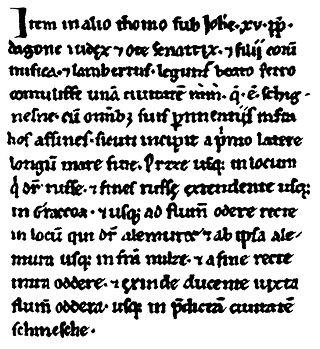 Item in alio thomo sub Ioħe · xv · pp̃ ·
dagone iudex ⁊ ote senatrix · ⁊ filij eorũ
misica · ⁊ lambertus · legunt̃ beato petro
contulisse unã ciuitatẽ q̃ · ẽ · schig-
nesne · cũ omĩb; suis ꝑtinentijs infra
hos affines · sicuti incipit a p̃mo latere
longũ mare fine · Pruzze usq; in locum
q̃ dr̃ russe · ⁊ fines russe extendente usq;
in Craccoa · ⁊ usq; ad flum̃ odere recte
in locũ qui dr̃ alemure ⁊ ab ipsa ale-
mura usq; in trã milze · ⁊ a fine recte
intra oddere · ⁊ exinde ducente iuxta
flum̃ oddera · usq; in p̃dictã ciuitatẽ
schinesche ·